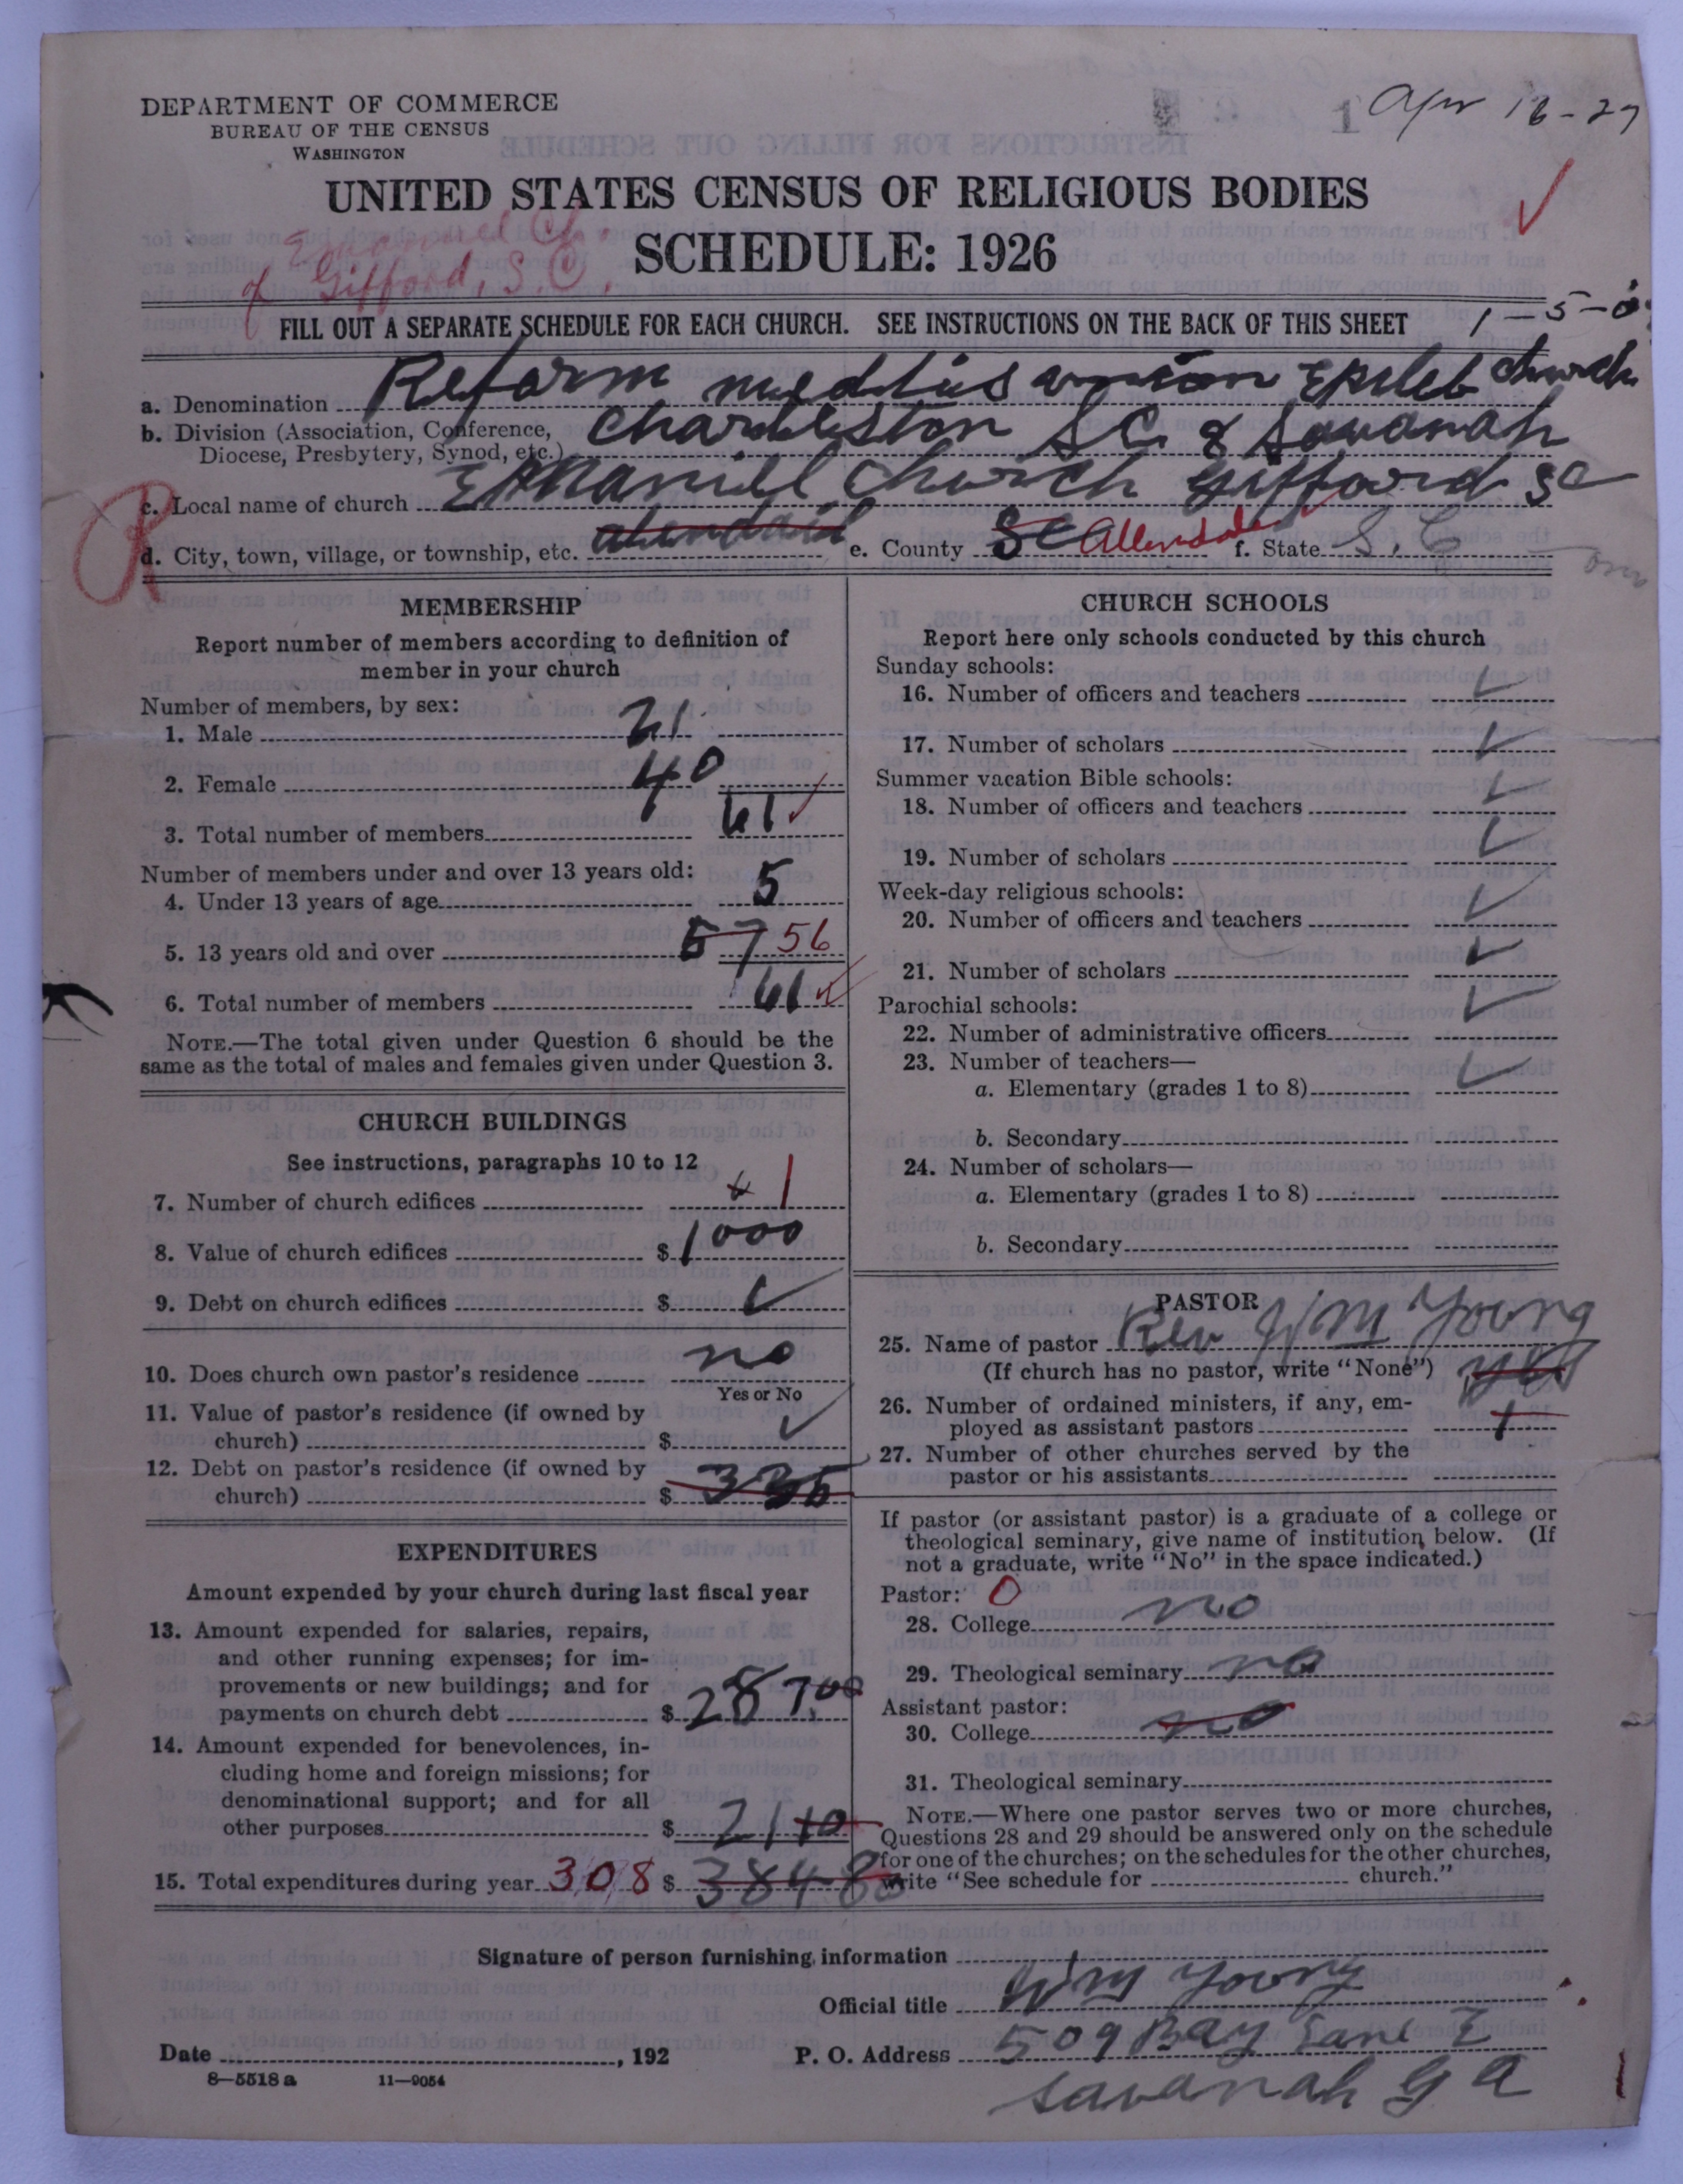 DEPARTMENT OF COMMERCE
BUREAU OF THE CENSUS
WASHINGTON
1 Apr 16-27
UNITED STATES CENSUS OF RELIGIOUS BODIES
SCHEDULE: 1926
of Gifford, S.C.
FILL OUT A SEPARATE SCHEDULE FOR EACH CHURCH. SEE INSTRUCTIONS ON THE BACK OF THIS SHEET
1-5-0
a. Denomination Reform union church
b. Division (Association, Conference, Diocese, Presbytery, Synod, etc.) Charleston SC & Savanah
c. Local name of church church Gifford SC
d. City, town, village, or township, etc. e. County SC Allendale f. State S.C
MEMBERSHIP
Report number of members according to definition of
member in your church
Number of members, by sex:
1. Male 21
2. Female 40
3. Total number of members 61
Number of members under and over 13 years old:
4. Under 13 years of age 5
5. 13 years old and over 57 56
6. Total number of members 61
NOTE.—The total given under Question 6 should be the
same as the total of males and females given under Question 3.
CHURCH BUILDINGS
See instructions, paragraphs 10 to 12
7. Number of church edifices 1
8. Value of church edifices $ 1000
9. Debt on church edifices $
10. Does church own pastor's residence no
Yes or No
11. Value of pastor's residence (if owned by
church) $
12. Debt on pastor's residence (if owned by
church) $ 335
EXPENDITURES
Amount expended by your church during last fiscal year
13. Amount expended for salaries, repairs,
and other running expenses; for im-
provements or new buildings; and for
payments on church debt $ 287.00
14. Amount expended for benevolences, in-
cluding home and foreign missions; for
denominational support; and for all
other purposes $ 21 10
15. Total expenditures during year 308 $ 384 80
CHURCH SCHOOLS
Report here only schools conducted by this church
Sunday schools:
16. Number of officers and teachers
17. Number of scholars
Summer vacation Bible schools:
18. Number of officers and teachers
19. Number of scholars
Week-day religious schools:
20. Number of officers and teachers
21. Number of scholars
Parochial schools:
22. Number of administrative officers
23. Number of teachers—
a. Elementary (grades 1 to 8)
b. Secondary
24. Number of scholars—
a. Elementary (grades 1 to 8)
b. Secondary
PASTOR
25. Name of pastor Rev Wm Young
(If church has no pastor, write "None") yes
26. Number of ordained ministers, if any, em-
ployed as assistant pastors 1
27. Number of other churches served by the
pastor or his assistants
If pastor (or assistant pastor) is a graduate of a college or
theological seminary, give name of institution below. (If
not a graduate, write "No" in the space indicated.)
Pastor: 0
28. College no
29. Theological seminary no
Assistant pastor:
30. College no
31. Theological seminary
NOTE.—Where one pastor serves two or more churches,
Questions 28 and 29 should be answered only on the schedule
for one of the churches; on the schedules for the other churches,
write "See schedule for church."
Signature of person furnishing information
Official title Wm Young
Date , 192 P. O. Address 509 Bay Lane E
8—5518 a 11—9054
Savanah GA